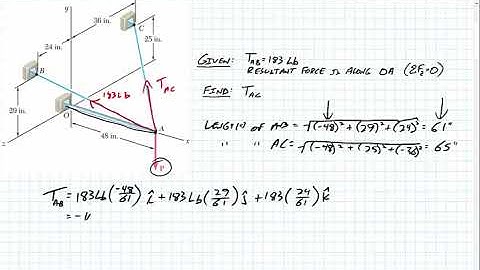 y
36 in.
C
24 in.
25 in.
B
183 Lb
T_AC
29 in.
O
48 in.
A
x
z
P
GIVEN: T_AB = 183 Lb
RESULTANT FORCE IS ALONG OA (ΣF_z=0)
FIND: T_AC
LENGTH OF AB = √(-48)² + (29)² + (24)² = 61"
" " AC = √(-48)² + (25)² + (-36)² = 65"
T_AB = 183 Lb (-48/61) î + 183 Lb (29/61) ĵ + 183 (24/61) k̂
= -